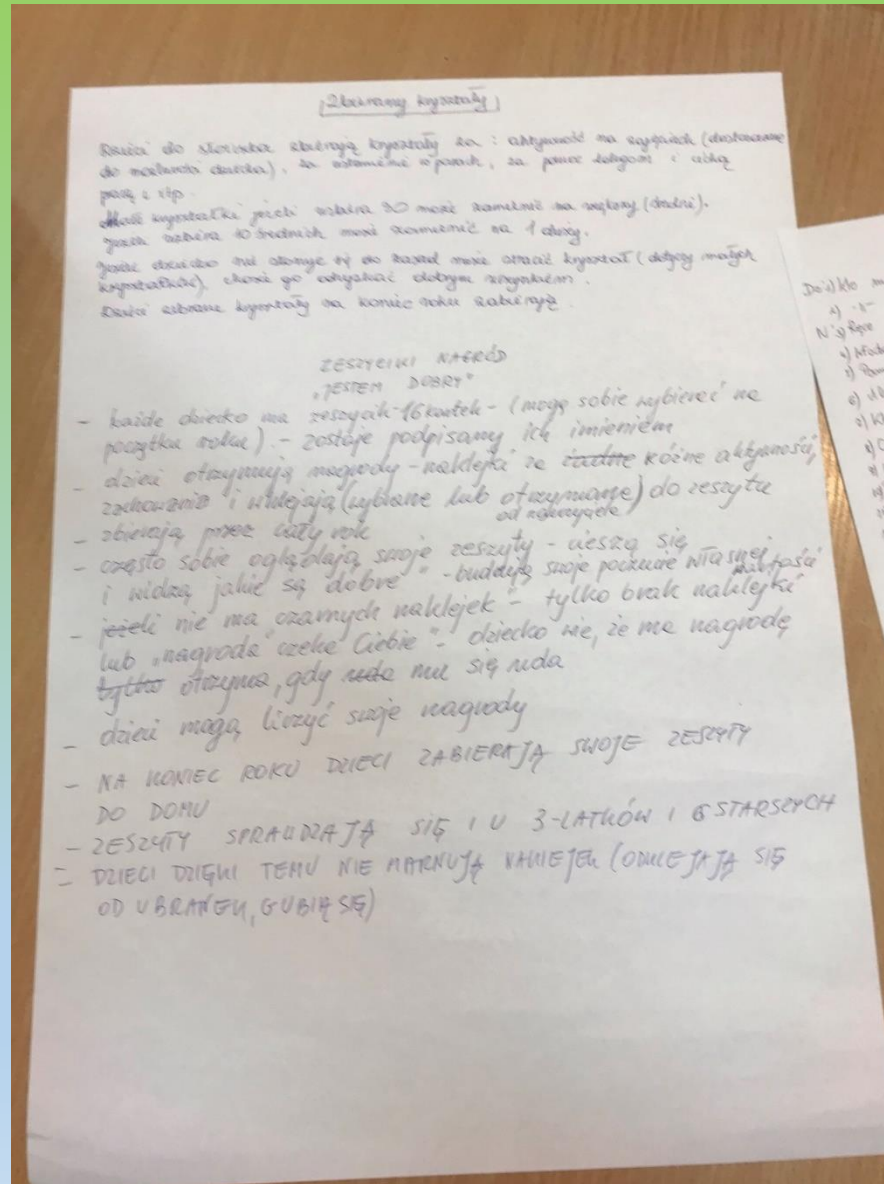 Zbieramy kryształy
Dzieci do słoiczka zbierają kryształy za : aktywność na zajęciach (dostosowane
do możliwości dziecka), za ustawienie w parach, za pomoc kolegom i cichą
pracę i itp.
Małe kryształki jeżeli uzbiera 20 może zamienić na większy (średni).
Jeżeli uzbiera 10 średnich może zamienić na 1 duży.
Jeżeli dziecko nie stosuje się do zasad może stracić kryształ (dotyczy małych
kryształków), może go odzyskać dobrym
Dzieci zebrane kryształy na koniec roku zabierają.
ZESZYCIKI NAGRÓD
„JESTEM DOBRY"
- każde dziecko ma zeszycik - 16 kartek - (mogą sobie wybierać na
początku roku). - zostaje podpisany ich imieniem
- dzieci otrzymują nagrody - naklejki za żadne różne aktywności,
zachowania i wklejają (wybrane lub otrzymane) do zeszytu
od nauczyciela
- zbierają przez cały rok
- często sobie oglądają swoje zeszyty - cieszą się
i widzą jakie są dobre" - budują swoje poczucie własnej
wartości
- jeżeli nie ma czarnych naklejek" - tylko brak naklejki
lub „nagroda" czeka Ciebie" - dziecko wie, że ma nagrodę
tylko otrzyma, gdy uda mu się uda
- dzieci mogą liczyć swoje nagrody
- NA KONIEC ROKU DZIECI ZABIERAJĄ SWOJE ZESZYTY
DO DOMU
- ZESZYTY SPRAWDZAJĄ SIĘ I U 3-LATKÓW I 6 STARSZYCH
= DZIECI DZIĘKI TEMU NIE MARNUJĄ NAKLEJEK (ODKLEJAJĄ SIĘ
OD UBRANEK, GUBIĄ SIĘ)